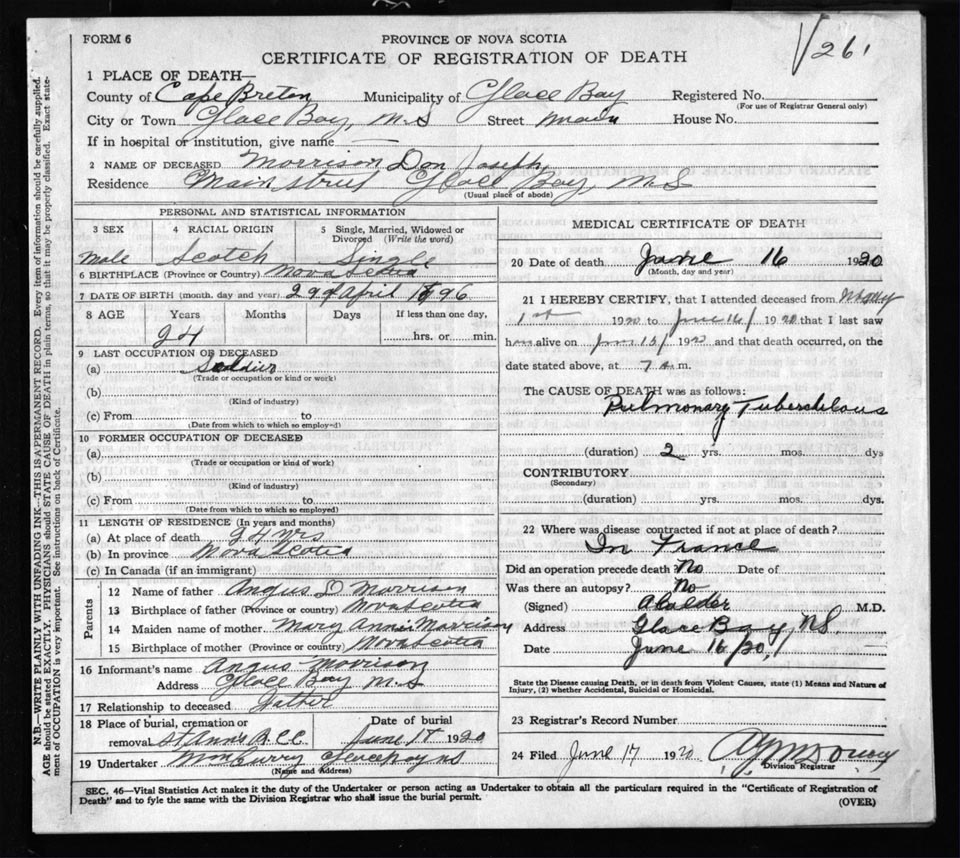 FORM 6
PROVINCE OF NOVA SCOTIA
CERTIFICATE OF REGISTRATION OF DEATH
261
1 PLACE OF DEATH—
County of Cape Breton Municipality of Glace Bay Registered No.
(For use of Registrar General only)
City or Town Glace Bay, N.S Street Main House No.
If in hospital or institution, give name
2 NAME OF DECEASED Morrison Don Joseph
Residence Main Street Glace Bay, N.S
(Usual place of abode)
PERSONAL AND STATISTICAL INFORMATION
3 SEX 4 RACIAL ORIGIN 5 Single, Married, Widowed or Divorced (Write the word)
Male Scotch Single
6 BIRTHPLACE (Province or Country) Nova Scotia
7 DATE OF BIRTH (month, day and year) 29 April 1896
8 AGE Years Months Days If less than one day,
24 hrs. or min.
9 LAST OCCUPATION OF DECEASED
(a) Soldier
(Trade or occupation or kind or work)
(b)
(Kind of industry)
(c) From to
(Date from which to which so employed)
10 FORMER OCCUPATION OF DECEASED
(a)
(Trade or occupation or kind of work)
(b)
(Kind of industry)
(c) From to
(Date from which to which so employed)
11 LENGTH OF RESIDENCE (In years and months)
(a) At place of death 24 yrs
(b) In province Nova Scotia
(c) In Canada (if an immigrant)
Parents
12 Name of father Angus D Morrison
13 Birthplace of father (Province or country) Nova Scotia
14 Maiden name of mother Mary Annie Morrison
15 Birthplace of mother (Province or country) Nova Scotia
16 Informant's name Angus Morrison
Address Glace Bay N.S
17 Relationship to deceased Father
18 Place of burial, cremation or Date of burial
removal St Anns June 18 1920
19 Undertaker Glace Bay NS
(Name and Address)
MEDICAL CERTIFICATE OF DEATH
20 Date of death June 16 1920
(Month, day and year)
21 I HEREBY CERTIFY, that I attended deceased from
1st 1920 to June 16/ 1920 that I last saw
him alive on June 15/ 1920 and that death occurred, on the
date stated above, at 7 a.m.
The CAUSE OF DEATH was as follows:
Pulmonary Tuberculous
(duration) 2 yrs. mos. dys
CONTRIBUTORY
(Secondary)
(duration) yrs. mos. dys.
22 Where was disease contracted if not at place of death?
In France
Did an operation precede death? No Date of
Was there an autopsy? No
(Signed) M.D.
Address Glace Bay, N.S.
Date June 16/20
State the Disease causing Death, or in death from Violent Causes, state (1) Means and Nature of
Injury, (2) whether Accidental, Suicidal or Homicidal.
23 Registrar's Record Number
24 Filed June 17 1920
Division Registrar
SEC. 46—Vital Statistics Act makes it the duty of the Undertaker or person acting as Undertaker to obtain all the particulars required in the "Certificate of Registration of
Death" and to fyle the same with the Division Registrar who shall issue the burial permit.
(OVER)
N.B.—WRITE PLAINLY WITH UNFADING INK—THIS IS A PERMANENT RECORD. Every item of information should be carefully supplied.
AGE should be stated EXACTLY. PHYSICIANS should STATE CAUSE OF DEATH in plain terms, so that it may be properly classified. Exact state-
ment of OCCUPATION is very important. See instructions on back of Certificate.